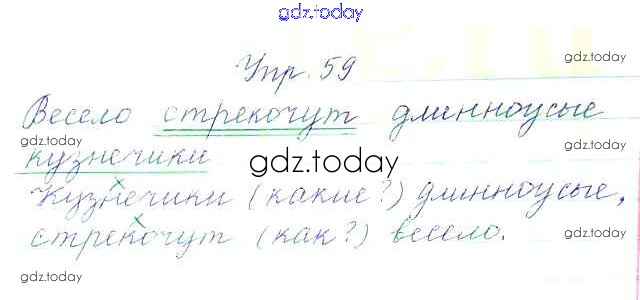 gdz.today
Упр. 59
gdz.today
Весело стрекочут длинноусые
gdz.today
gdz.today
кузнечики
gdz.today
Кузнечики (какие?) длинноусые,
стрекочут (как?) весело.
gdz.today
gdz.today